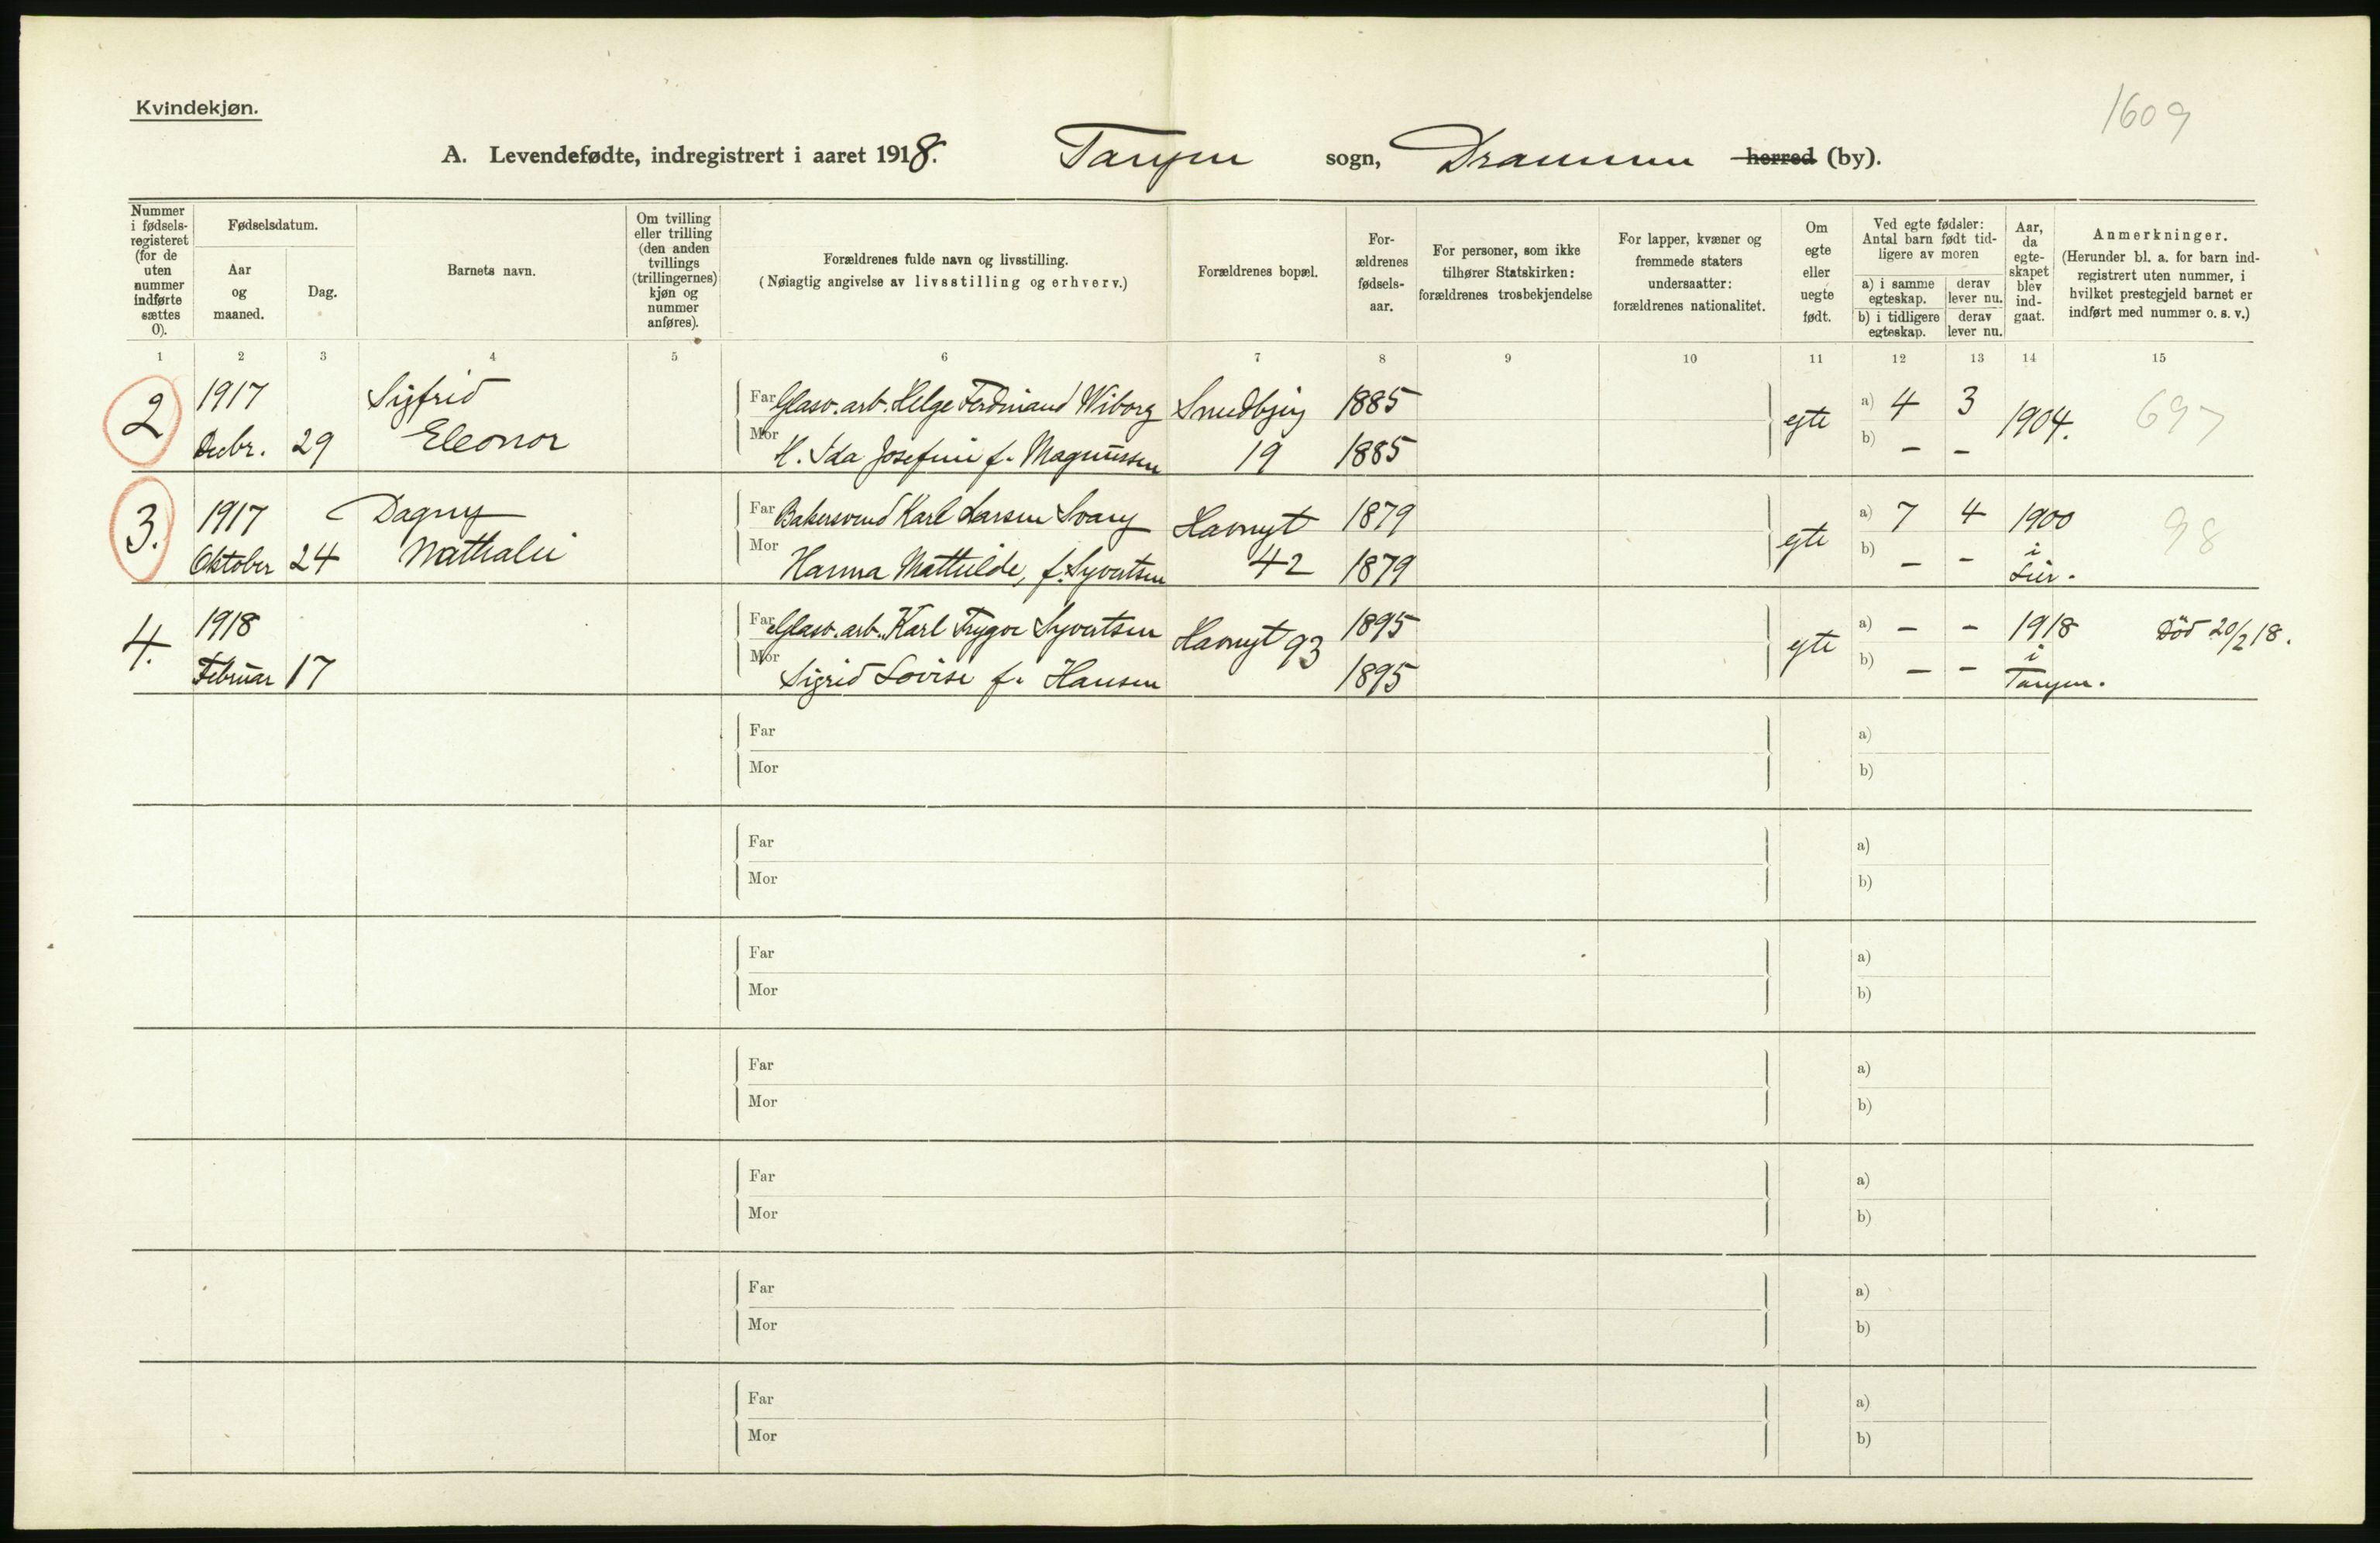 Kvindekjøn.
1609
A. Levendefødte, indregistrert i aaret 1918. Tangen sogn, Drammen herred (by).
Nummer i fødselsregisteret (for de uten nummer indførte sættes 0).
Fødselsdatum.
Aar og maaned.
Dag.
Barnets navn.
Om tvilling eller trilling (den anden tvillings (trillingernes) kjøn og nummer anføres).
Forældrenes fulde navn og livsstilling.
(Nøiagtig angivelse av livsstilling og erhverv.)
Forældrenes bopæl.
Forældrenes fødselsaar.
For personer, som ikke tilhører Statskirken: forældrenes trosbekjendelse
For lapper, kvæner og fremmede staters undersaatter: forældrenes nationalitet.
Om egte eller uegte født.
Ved egte fødsler: Antal barn født tidligere av moren
a) i samme egteskap.
derav lever nu.
b) i tidligere egteskap.
derav lever nu.
Aar, da egteskapet blev indgaat.
Anmerkninger.
(Herunder bl. a. for barn indregistrert uten nummer, i hvilket prestegjeld barnet er indført med nummer o. s. v.)
1 2 3 4 5 6 7 8 9 10 11 12 13 14 15
2 1917 Sigfrid Far Glasv. arb. Helge Ferdinand Wiborg 1885 egte a) 4 3 1904. 697
Decbr. 29 Eleonor Mor H. Ida Josefine f. Magnussen 19 1885 b) – –
3. 1917 Dagny Far Bakersvend Karl Larsen Svang Havngt 1879 egte a) 7 4 1900 98
Oktober 24 Nathalie Mor Hanna Mathilde, f. Syvertsen 42 1879 b) – – i Lier.
4. 1918 Far Glasv. arb. Karl Trygve Syvertsen Havngt 93 1895 egte a) – – 1918 Död 20/2 18.
Februar 17 Mor Sigrid Lovise f. Hansen 1895 b) – – i Tangen.
Far a)
Mor b)
Far a)
Mor b)
Far a)
Mor b)
Far a)
Mor b)
Far a)
Mor b)
Far a)
Mor b)
Far a)
Mor b)